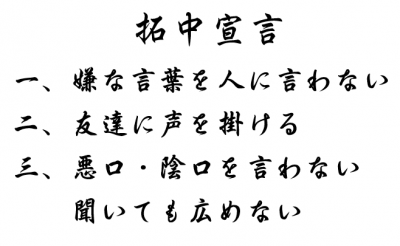 拓中宣言
一、嫌な言葉を人に言わない
二、友達に声を掛ける
三、悪口・陰口を言わない
聞いても広めない